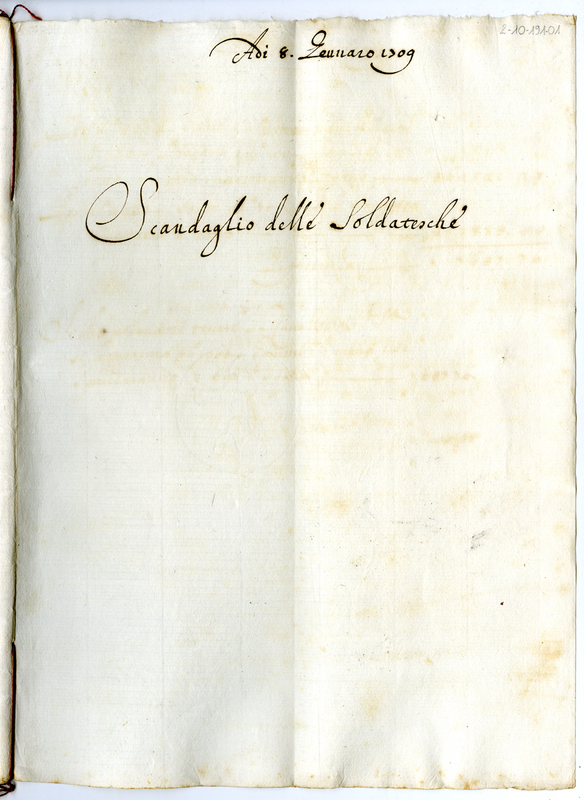 2-10-191-01
Adi 8. Gennaro 1709
Scandaglio delle Soldatesche